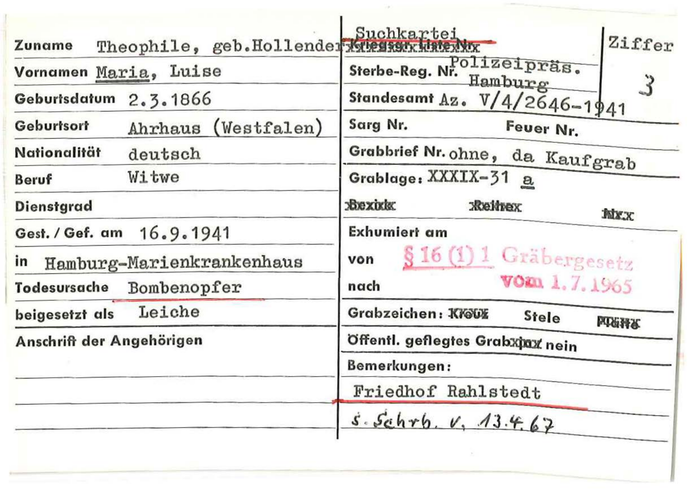 Zuname Theophile, geb.Hollender
Vornamen Maria, Luise
Geburtsdatum 2.3.1866
Geburtsort Ahrhaus (Westfalen)
Nationalität deutsch
Beruf Witwe
Dienstgrad
Gest./Gef. am 16.9.1941
in Hamburg-Marienkrankenhaus
Todesursache Bombenopfer
beigesetzt als Leiche
Anschrift der Angehörigen
Suchkartei
Ziffer
3
Sterbe-Reg. Nr. Polizeipräs.
Hamburg
Standesamt Az. V/4/2646-1941
Sarg Nr. Feuer Nr.
Grabbrief Nr. ohne, da Kaufgrab
Grablage: XXXIX-31 a
Bezirk Reihe Nr.
Exhumiert am
von § 16 (1) 1 Gräbergesetz
nach vom 1.7.1965
Grabzeichen: Kreuz Stele Platte
Öffentl. gepflegtes Grab ja nein
Bemerkungen:
Friedhof Rahlstedt
s. Schrb. v. 13.4.67